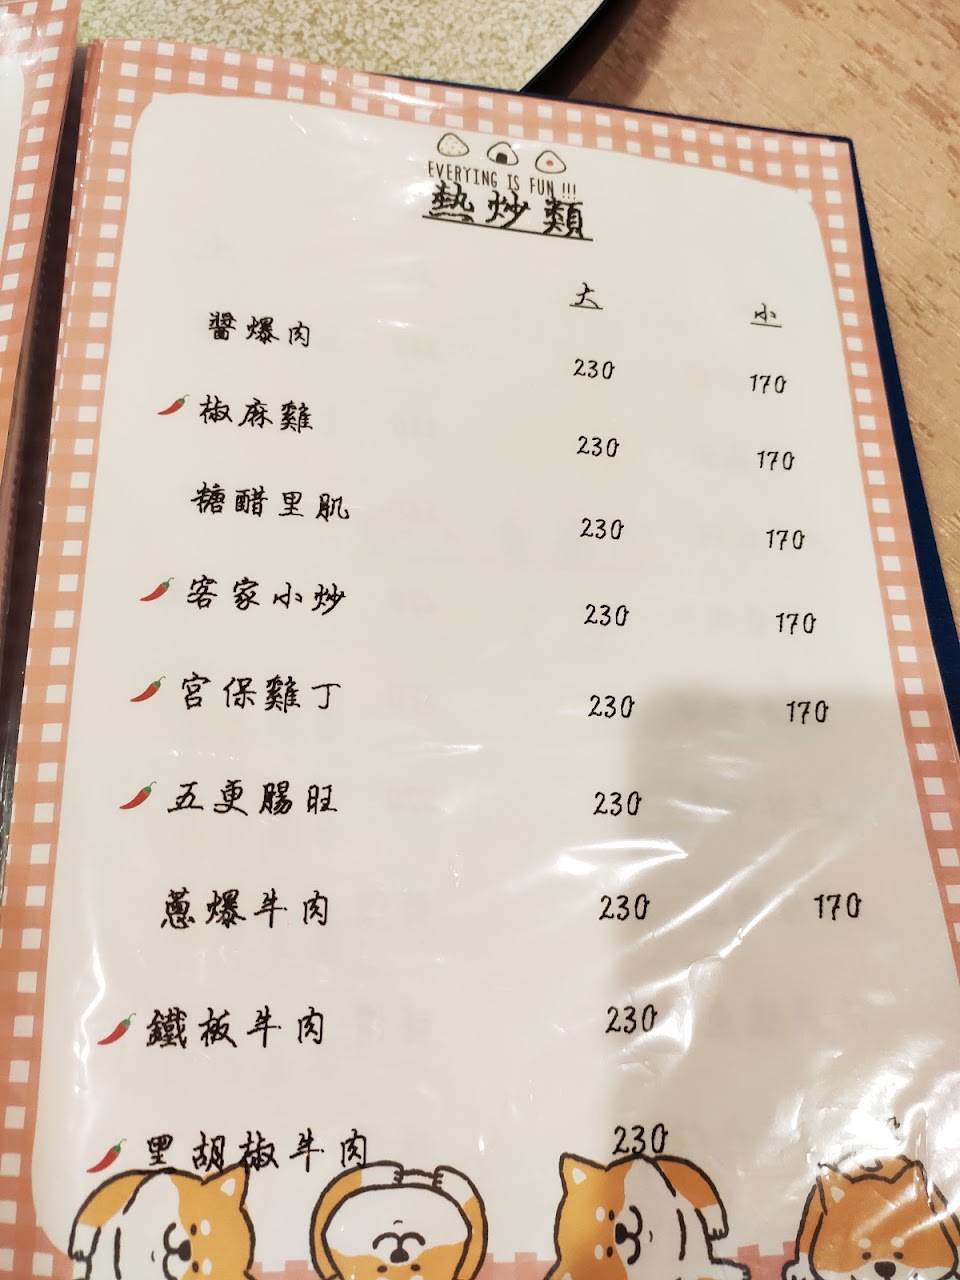 EVERYING IS FUN !!!
熱炒類
大 小
醬爆肉 230 170
椒麻雞 230 170
糖醋里肌 230 170
客家小炒 230 170
宮保雞丁 230 170
五更腸旺 230
蔥爆牛肉 230 170
鐵板牛肉 230
黑胡椒牛肉 230